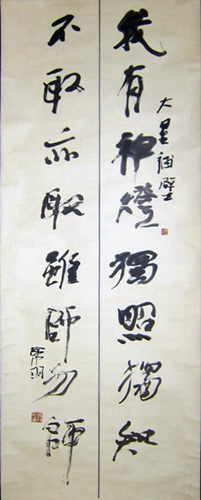 我有神燈獨照獨知
大星補壁
不取亦取雖師勿師